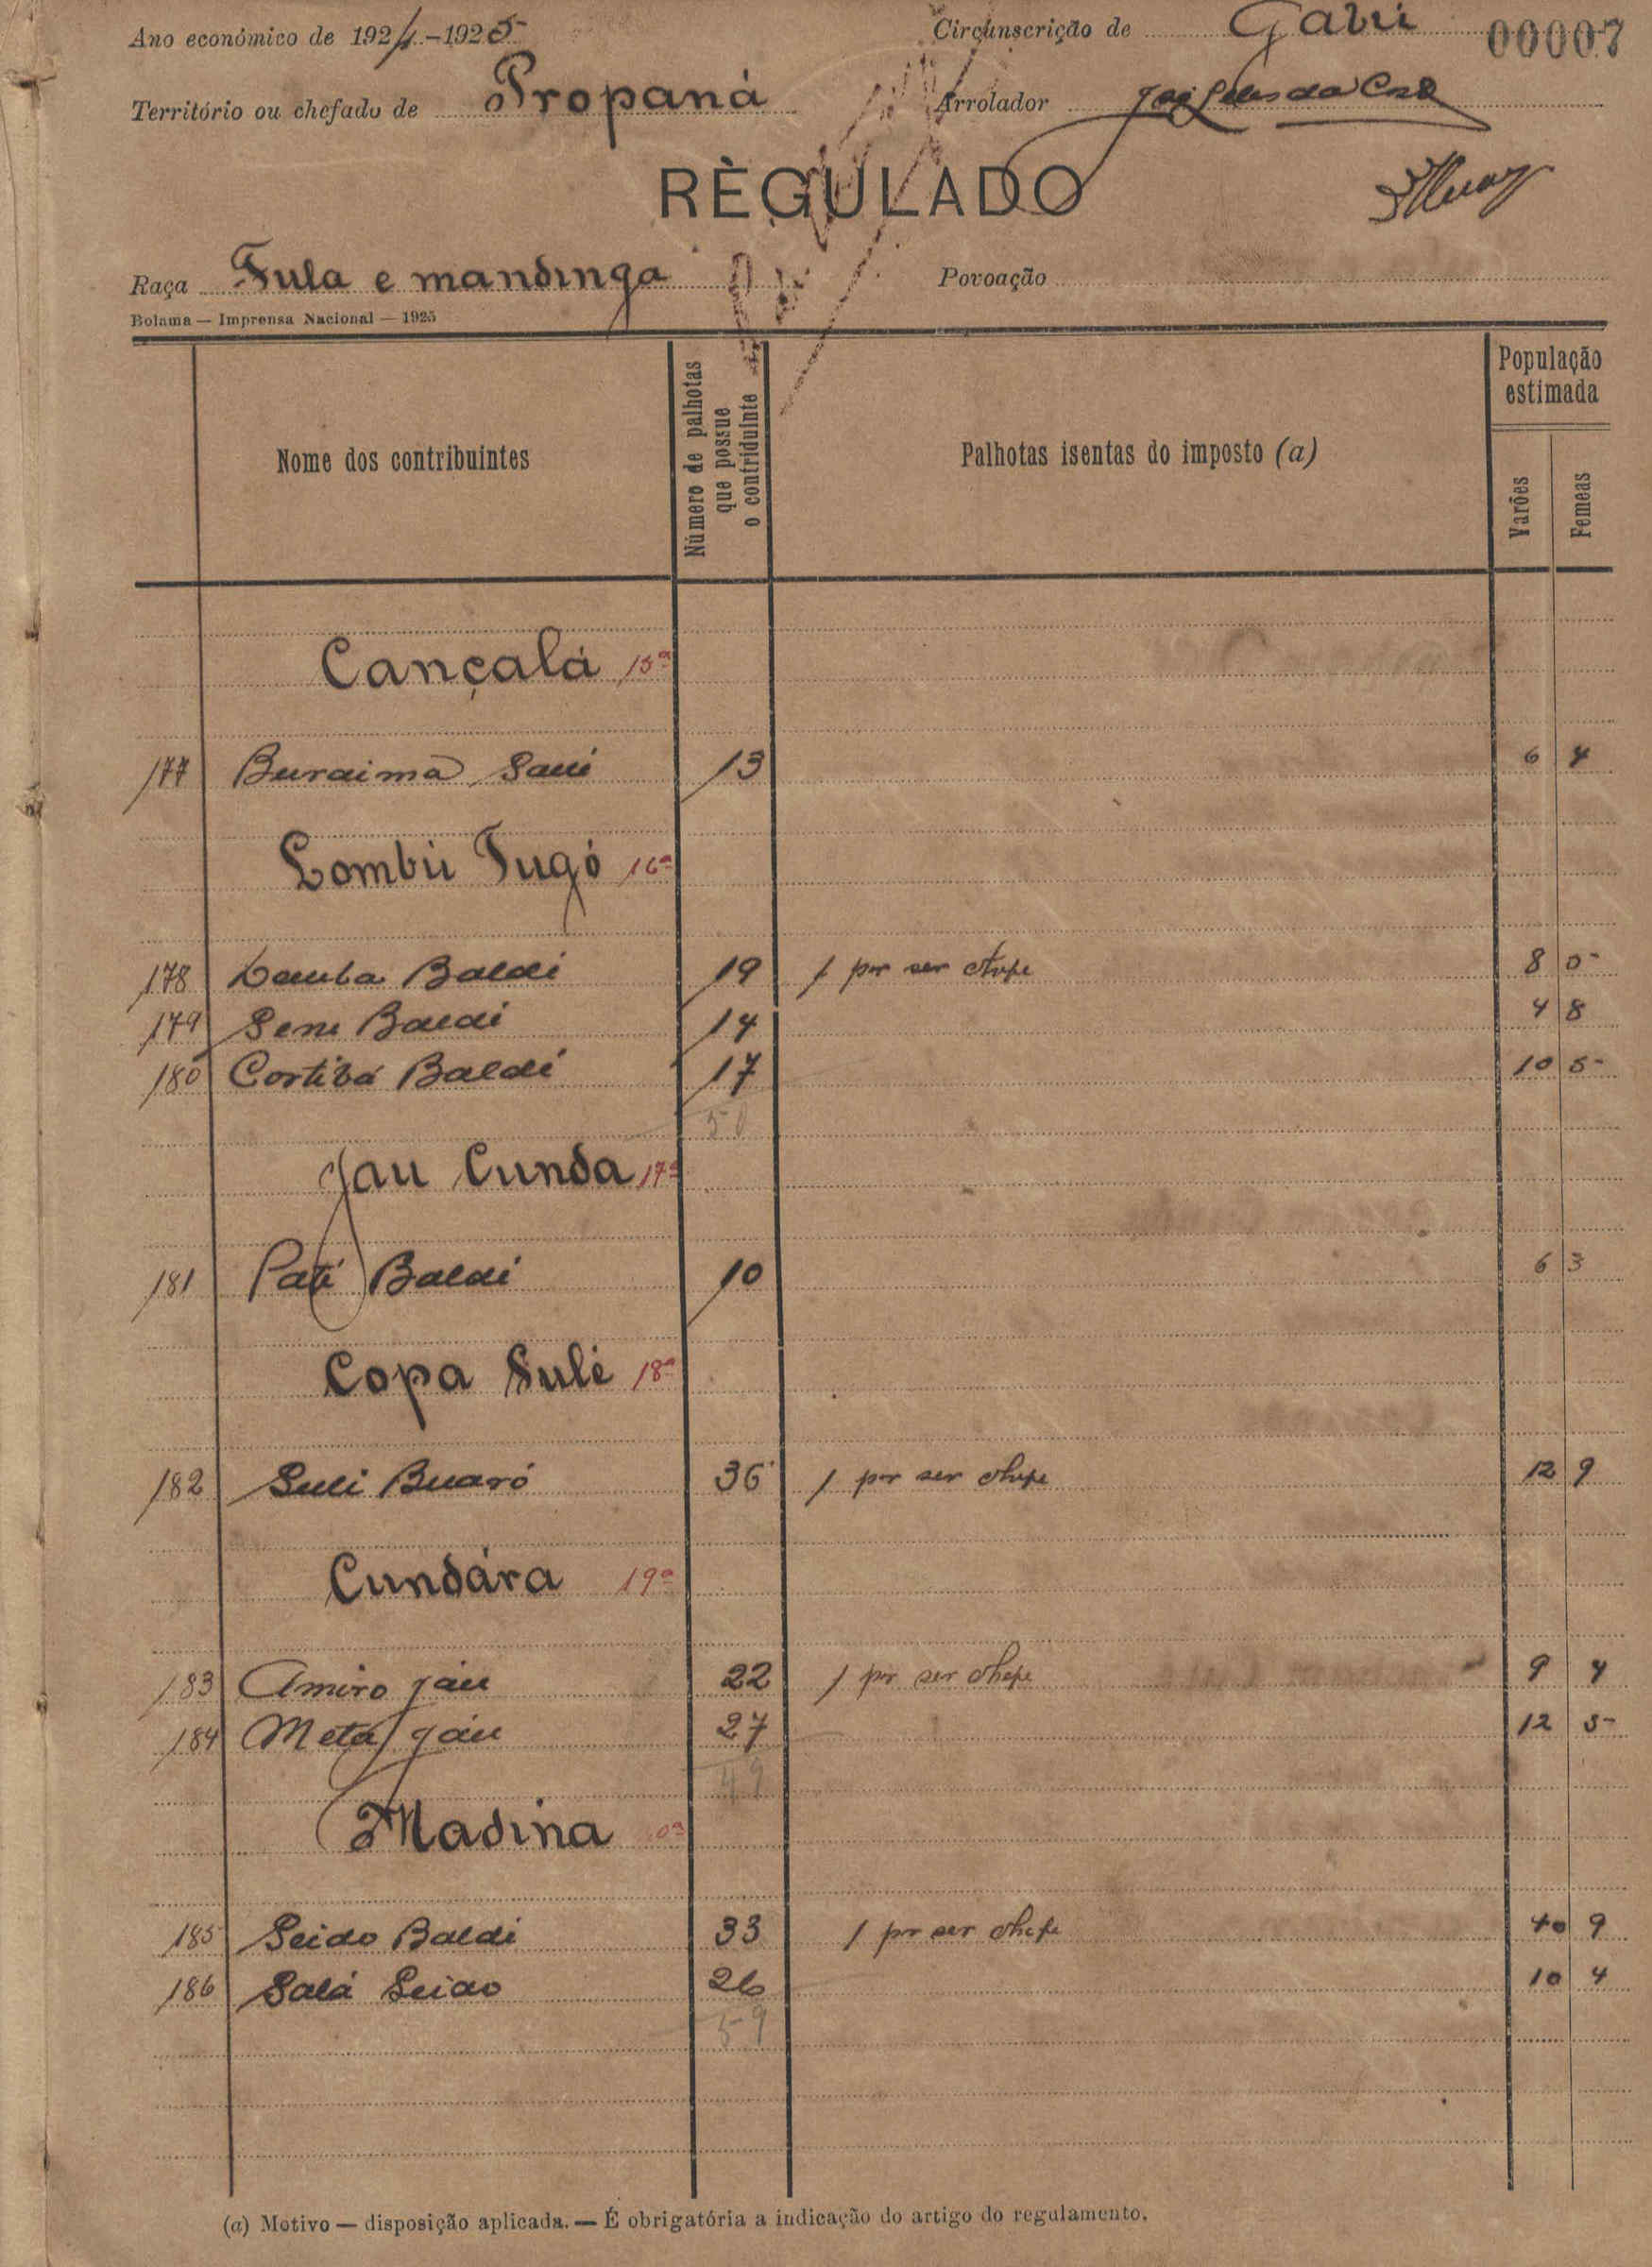 Ano económico de 1924-1925 Circunscrição de Gabú 00007
Território ou chefado de Propaná Arrolador
RÈGULADO
Raça Fula e mandinga Povoação
Bolama — Imprensa Nacional — 1925
Nome dos contribuintes
Número de palhotas que possue o contriduinte
Palhotas isentas do imposto (a)
População estimada
Varões Femeas
Cançalá 15ª
177 Buraima Saui 13 6 4
Lombú Tugó 16ª
178 Demba Baldé 19 1 por ser chefe 8 5
179 Sene Baldé 14 4 8
180 Cortibá Baldé 17 10 5
50
Jau Cunda 17ª
181 Paté Baldé 10 6 3
Copa Sulé 18ª
182 Suli Buaró 36 1 por ser chefe 12 9
Cundára 19ª
183 Amiro Jáu 22 1 por ser chefe 9 4
184 Metá Jáu 27 12 5
49
Madina
185 Seido Baldé 33 1 por ser chefe 10 9
186 Salá Seido 26 10 4
59
(a) Motivo — disposição aplicada. — É obrigatória a indicação do artigo do regulamento.